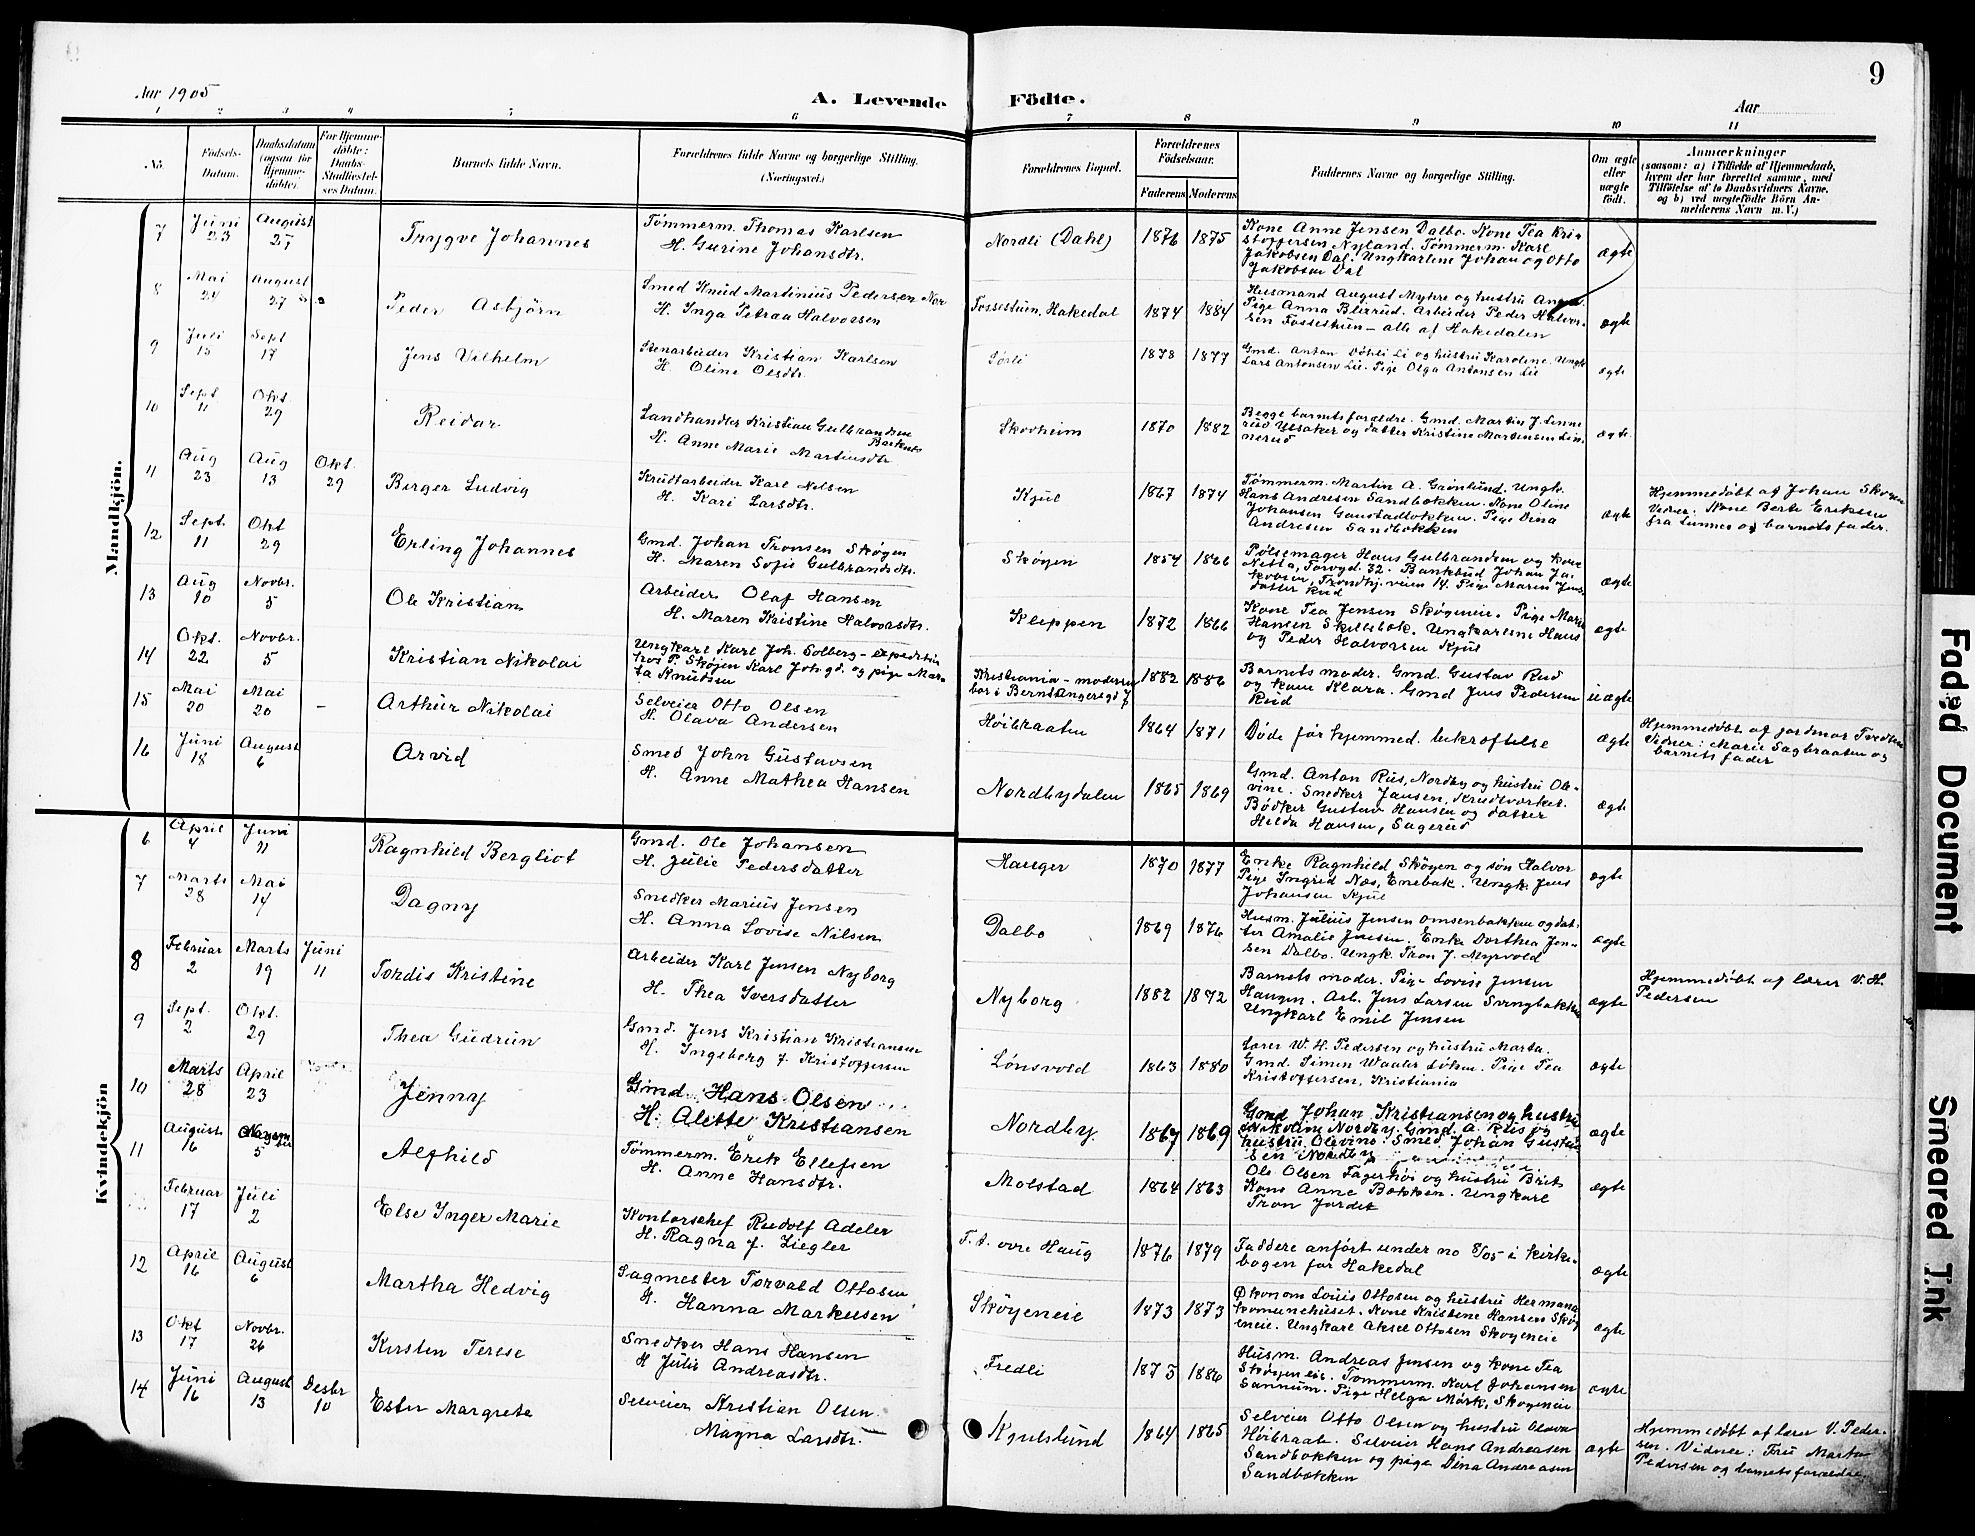 Aar 1905
A. Levende
Födte.
9
Aar
1 2 3 4 5 6 7 8 9 10 11
No.
Födsels-
Datum.
Daabsdatum
(ogsaa for
Hjemme-
döbte).
For Hjemme-
döbte:
Daabs-
Stadfæstel-
ses Datum.
Barnets fulde Navn.
Forældrenes fulde Navne og borgerlige Stilling.
(Næringsvei.)
Forældrenes Bopæl.
Forældrenes
Födselsaar.
Faderens
Moderens
Faddernes Navne og borgerlige Stilling.
Om ægte
eller
uægte
födt.
Anmærkninger
(saasom: a) i Tilfælde af Hjemmedaab,
hvem der har forrettet samme, med
Tilföielse af to Daabsvidners Navne,
og b) ved uægtefödte Börn An-
melderens Navn m. V.)
Mandkjön.
7
Juni
23
August
27
Trygve Johannes
Tømmerm. Thomas Karlsen
H. Gurine Johansdtr.
Nordli (Dahl)
1876 1875
Kone Anne Jensen Dalbo. Kone Tea Kri-
stoffersen Nyland. Tømmerm. Karl
Jakobsen Dal. Ungkarlene Johan og Otto
Jakobsen Dal
ægte
8
Mai
24
August
27
Peder Asbjörn
Smed Knud Martinius Pedersen Nor
H. Inga Petraa Halvorsen
Fossestuen, Hakedal
1874 1884
Husmand August Myhre og hustru
Pige Anna Blixrud. Arbeider Peder Halvor-
sen Fossestuen – alle af Hakedalen
ægte
9
Juli
15
Sept
17
Jens Vilhelm
Stenarbeider Kristian Karlsen
H. Oline Olsdtr.
Sørli
1878 1877
Gmd. Anton Döhli Li og hustru Karoline. Ungk.
Lars Antonsen Lie. Pige Olga Antonsen Lie
ægte
10
Sept
11
Okt
29
Reidar
Landhandler Kristian Gulbrandsen
H. Anne Marie Martinsdtr
Skovheim
1870 1882
Begge barnets forældre. Gmd. Martin J. Linne
rud Ussaker og datter Kristine Martinsen Lin-
nerud
ægte
11
Aug
23
Aug
13
Okt.
29
Birger Ludvig
Krudtarbeider Karl Nilsen
H. Kari Larsdtr.
Kjul
1867 1874
Tømmerm. Martin A. Grønlund. Ungk.
Hans Andresen Sandbækken. Kone Oline
Johansen Gaustadbækken. Pige Dina
Andresen Sandbækken
ægte
Hjemmedøbt af Johan Skøyen
Vidner: Kone Berte Eriksen
fra Lunnes og barnets fader.
12
Sept.
11
Okt
29
Erling Johannes
Gmd. Johan Tronsen Skøyen
H. Maren Sofie Gulbrandsdtr.
Skøyen
1854 1866
Pølsemager Hans Gulbrandsen og kone
Netta, Torvgd. 32. Bankbud Johan Ja-
kobsen, Trondhj. veien 14. Pige Maren Jens
datter Rud
ægte
13
Aug
10
Novbr.
5
Ole Kristian
Arbeider Olaf Hansen
H. Maren Kristine Halvorsdtr.
Kleppen
1872 1866
Kone Tea Jensen Skøyeneie. Pige Marie
Hansen Skillebæk. Ungkarlene Hans
og Peder Halvorsen Kjul
ægte
14
Okt.
22
Novbr.
5
Kristian Nikolai
Ungkarl Karl Joh. Solberg – expeditør
hos P. Skøjen Karl Joh.gd. og pige Mar-
ta Knudsen
Kristiania – moderen
bor i Bernt Angersgd 7
1882 1886
Barnets moder. Gmd. Gustav Rud
og kone Klara. Gmd Jens Pedersen
Rud
uægte
15
Mai
20
Mai
20
–
Arthur Nikolai
Selveier Otto Olsen
H. Olava Andersen
Høibraaten
1864 1871
Døde før hjemmed. bekræftelse
ægte
Hjemmedøbt af jordmor Tvedten
Vidner: Marie Sagbraaten og
barnets fader
16
Juni
18
August
6
Arvid
Smed John Gustavsen
H. Anne Mathea Hansen
Nordbydalen
1865 1869
Gmd. Anton Rus, Nordby og hustru Ol-
vine. Snedker Jansen, Krudtværket.
Bødker Gustav Hansen og datter
Hilda Hansen, Sagerud
ægte
Kvindekjön
6
April
4
Juni
11
Ragnhild Bergliot
Gmd. Ole Johansen
H. Julie Pedersdatter
Hauger
1870 1877
Enke Ragnhild Skøyen og søn Halvor
Pige Ingrid Næs, Enebak. Ungk. Jens
Johansen Kjul
ægte
7
Marts
28
Mai
14
Dagny
Snedker Marius Jensen
H. Anna Lovise Nilsen
Dalbo
1869 1876
Husm. Julius Jensen Omsenbakken og dat-
ter Amalie Jensen. Enke Dorthea Jen-
sen Dalbo. Ungk. Tron J. Myrvold
ægte
8
Februar
2
Marts
19
Juni
11
Tordis Kristine
Arbeider Karl Jensen Nyborg
H. Thea Iversdatter
Nyborg
1882 1872
Barnets moder. Pige Lovise Jensen
Haugen. Arb. Jens Larsen Svingbakken
Ungkarl Emil Jensen
ægte
Hjemmedøbt af lærer V. H.
Pedersen
9
Sept.
2
Okt.
29
Thea Gudrun
Gmd. Jens Kristian Kristiansen
H. Ingeborg J. Kristoffersen
Lønsvold
1863 1880
Lærer W. H. Pedersen og hustru Marta.
Gmd. Simen Waaler Løken. Pige Tea
Kristoffersen, Kristiania
ægte
10
Marts
28
April
23
Jenny
Gmd. Hans Olsen
H. Alette Kristiansen
Nordby.
1867 1869
Gmd Johan Kristiansen og hustru
Nikoline Nordby. Gmd. A. Rus og
hustru Olevine. Smed Johan Gustav
sen Nordby
ægte
11
August
16
5
Alfhild
Tømmerm. Erik Ellefsen
H. Anne Hansdtr.
Molstad
1864 1863
Ole Olsen Fagerhøi og hustru Brit
Kone Anne Bækken. Ungkarl
Tron Jordet
ægte
Februar
17
Juli
2
Else Inger Marie
Kontorschef Rudolf Adeler
H. Ragna J. Ziegler
F. t. øvre Haug
1876 1879
Faddere anført under no 8/05 i kirke-
bogen for Hakedal
ægte
12
April
16
August
6
Martha Hedvig
Sagmester Torvald Ottosen
H. Hanna Markusen
Skøyeneie
1873 1873
Økonom Louis Ottosen og hustru Hermana
komunehuset. Kone Kristine Hansen Skøy
eneie. Ungkarl Aksel Ottosen Skøyeneie
ægte
13
Okt
17
Novbr.
26
Kirsten Terese
Snedker Hans Hansen
H Julie Andreasdtr.
Fredli
1873 1886
Husm. Andreas Jensen og kone Tea
Skøyeneie. Tømmerm. Karl Johansen
Sannum. Pige Helga Mørk, Skøyeneie
ægte
14
Juni
16
August
13
Desbr
10
Ester Margrete
Selveier Kristian Olsen
Magna Larsdtr.
Kjulslund
1864 1865
Selveier Otto Olsen og hustru Olava
Høibraat. Selveier Hans Andreasen
Sandbækken og pige Dina Andreasen
Sandbækken
ægte
Hjemmedøbt af lærer V. Peder-
sen. Vidner: Fru Marta
Pedersen og barnets forældre
Faded Document
Smeared Ink